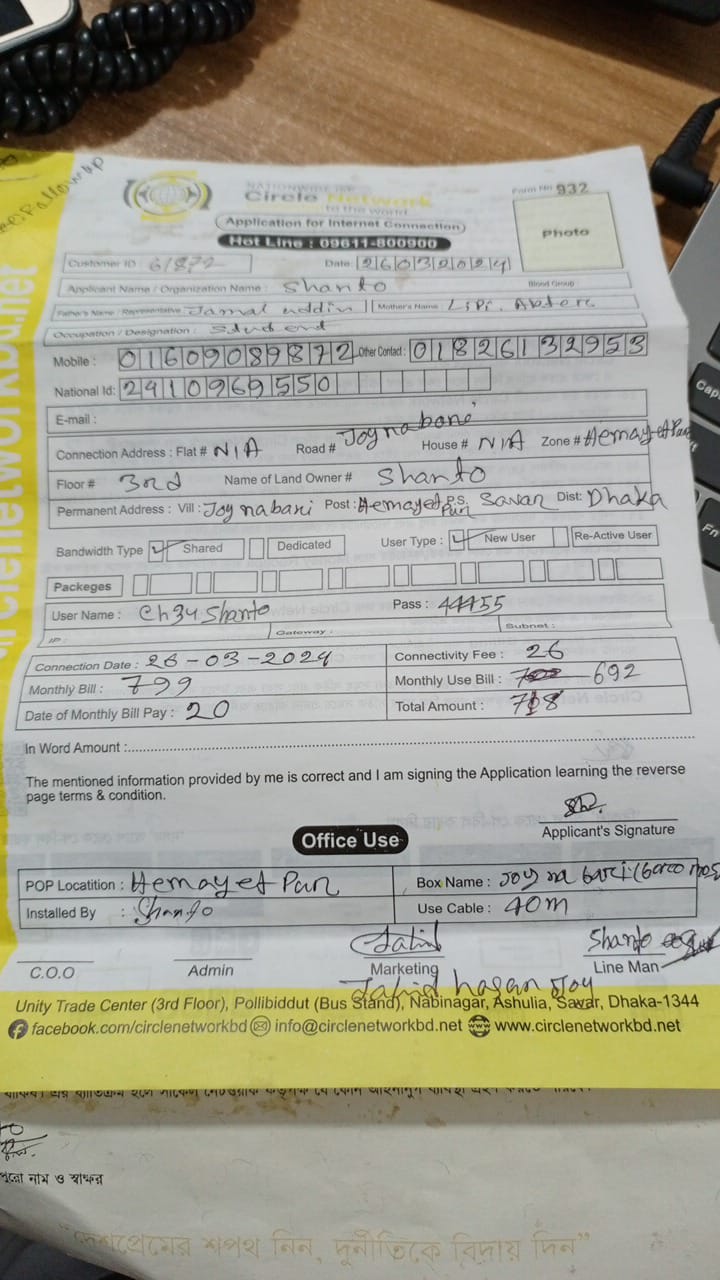 NATIONWIDE ISP
Circle Network
to the world
Form No 932
Application for Internet Connection
Hot Line : 09611-800900
Photo
Customer ID 61872 Date: 26032024
Applicant Name / Organization Name : Shanto Blood Group :
Father's Name / Representative : Jamal uddin Mother's Name : Lipi. Akter
Occupation / Designation : Student
Mobile : 01609089872 Other Contact : 01826132953
National Id: 2410969550
E-mail :
Connection Address : Flat # N/A Road # Joynabari House # N/A Zone # Hemayet Pur
Floor # 3rd Name of Land Owner # Shanto
Permanent Address : Vill : Joynabari Post : Hemayet Pur P.S. Savar Dist: Dhaka
Bandwidth Type ✓ Shared Dedicated User Type : ✓ New User Re-Active User
Packeges
User Name : Ch34 Shanto Pass : 44455
IP : Gateway : Subnet :
Connection Date : 26-03-2024 Connectivity Fee : 26
Monthly Bill : 799 Monthly Use Bill : 692
Date of Monthly Bill Pay : 20 Total Amount : 718
In Word Amount :
The mentioned information provided by me is correct and I am signing the Application learning the reverse
page terms & condition.
Applicant's Signature
Office Use
POP Locatition : Hemayet Pur Box Name : Joy na bari
Installed By : Shanto Use Cable : 40m
Shanto
C.O.O Admin Marketing Line Man
Jahid hasan Joy
Unity Trade Center (3rd Floor), Pollibiddut (Bus Stand), Nabinagar, Ashulia, Savar, Dhaka-1344
facebook.com/circlenetworkbd info@circlenetworkbd.net www.circlenetworkbd.net
circlenetworkbd.net
পুরো নাম ও স্বাক্ষর
“দেশপ্রেমের শপথ নিন, দুর্নীতিকে বিদায় দিন”
Fn